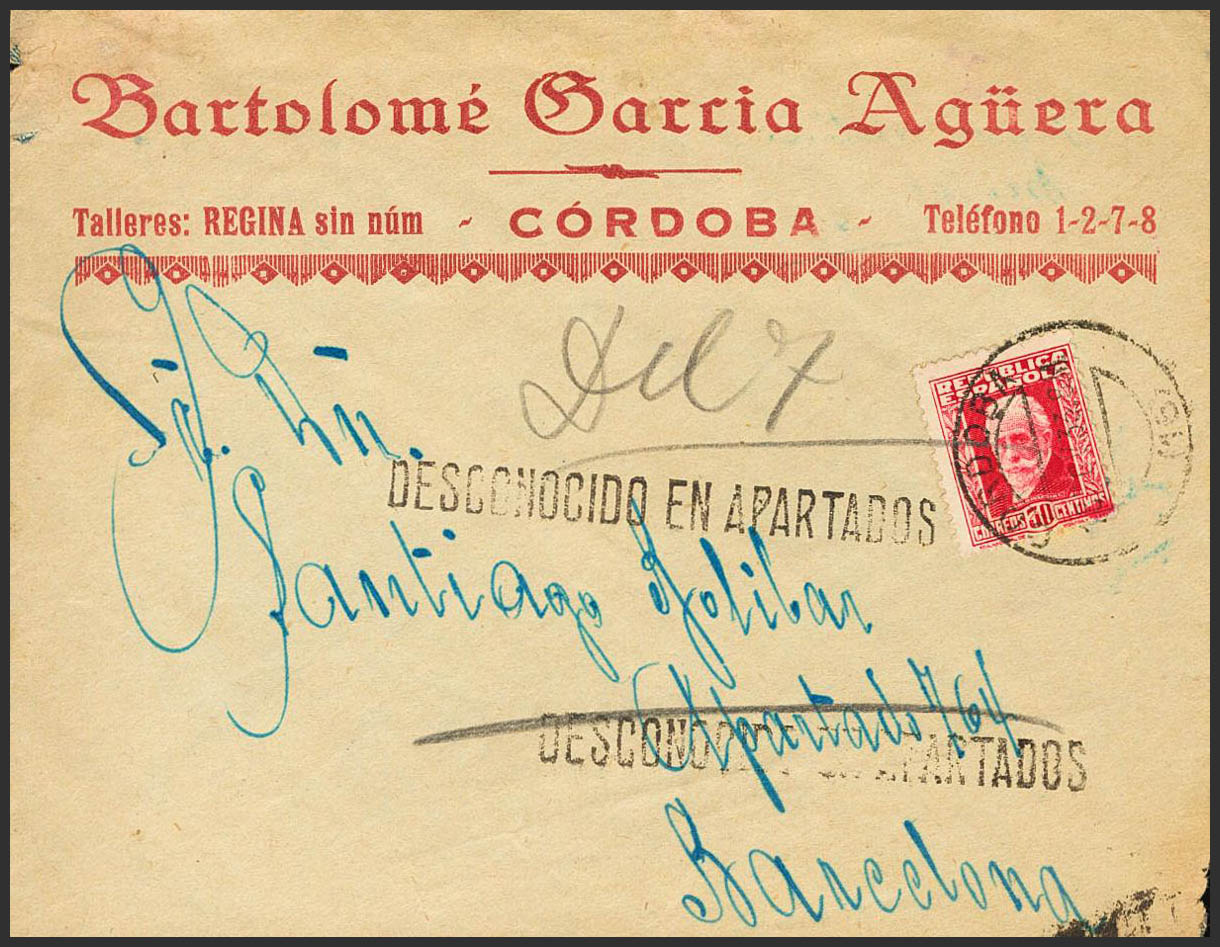 Bartolomé Garcia Agüera
Talleres: REGINA sin núm - CÓRDOBA - Teléfono 1-2-7-8
REPUBLICA
ESPAÑOLA
CORREOS 30 CENTIMOS
CORDOBA
Sr. Dn.
DESCONOCIDO EN APARTADOS
Santiago Golibar
Apartado 764
DESCONOCIDO EN APARTADOS
Barcelona